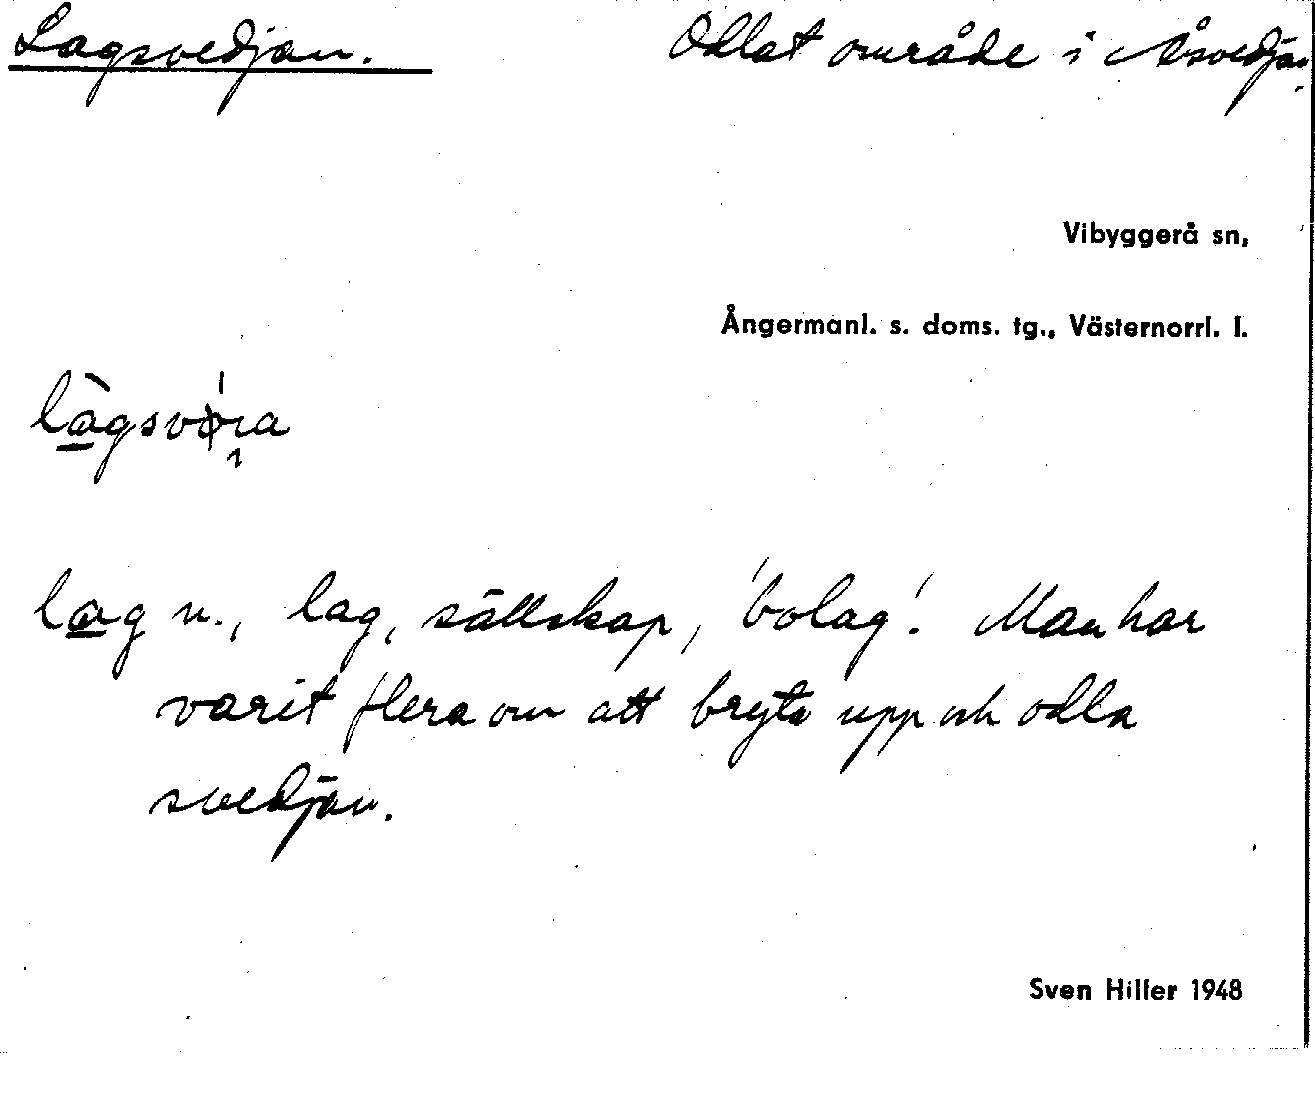 Lagsvedjan. Odlat område i Åsvedjan.
Vibyggerå sn,
Ångermanl. s. doms. tg., Västernorrl. l.
làgsvø̍ɿa
lag n., lag, sällskap, 'bolag'. Man har
varit flera om att bryta upp och odla
svedjan.
Sven Hiller 1948